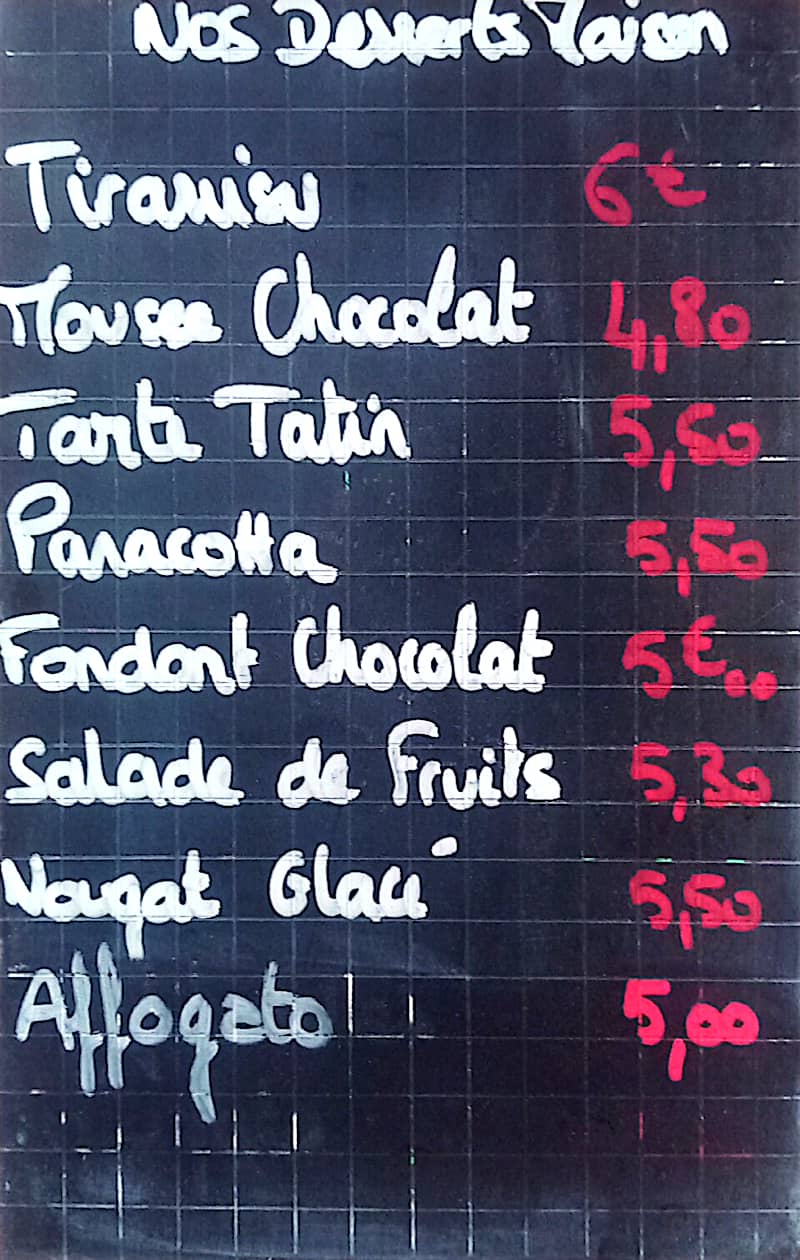 Nos Desserts Maison
Tiramisu 6€
Mousse Chocolat 4,80
Tarte Tatin 5,50
Panacotta 5,50
Fondant Chocolat 5€00
Salade de Fruits 5,30
Nougat Glacé 5,50
Affogato 5,00